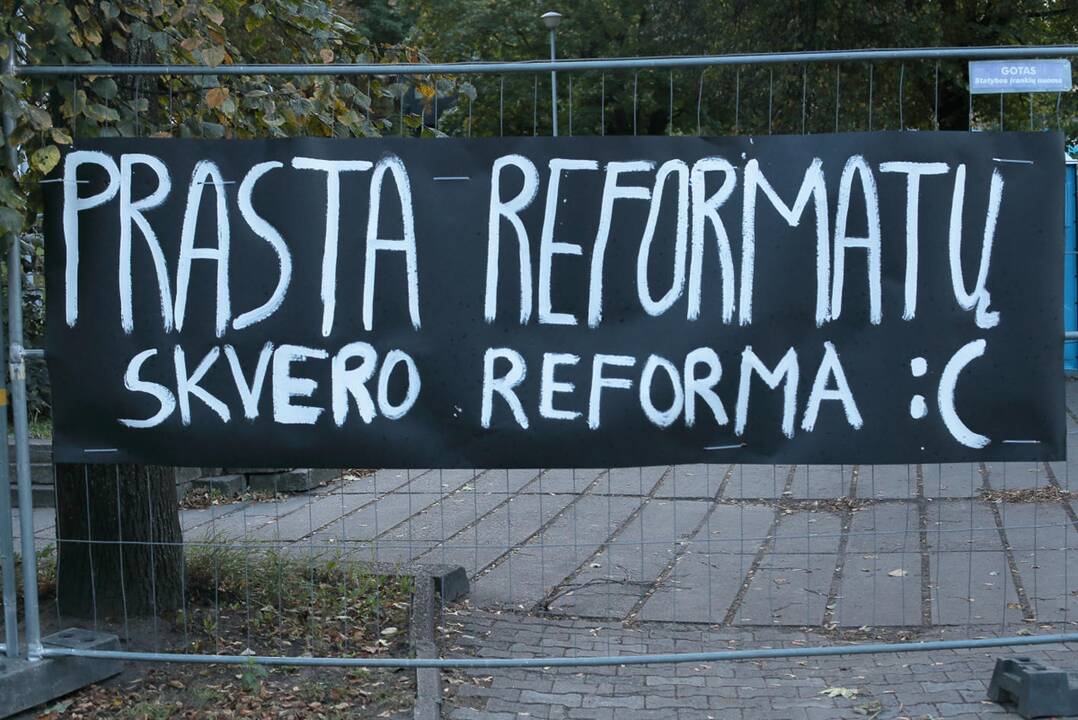 GOTAS
Statybos įrankių nuoma
PRASTA REFORMATŲ
SKVERO REFORMA :C